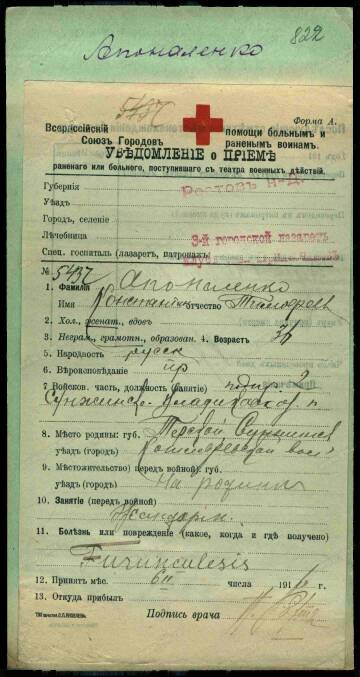 Апоналенко
822
5437
Форма А.
Всероссійскій помощи больнымъ и
Союзъ Городовъ раненымъ воинамъ.
УВѢДОМЛЕНІЕ о ПРІЕМѢ
раненаго или больного, поступившаго съ театра военныхъ дѣйствій.
Губернія Ростовъ н-Д.
Уѣздъ
Городъ, селеніе
Лѣчебница 3-й городской лазаретъ
Спец. госпиталь (лазаретъ, патронажъ)
№ 5437
1. Фамилія Апоналенко
Имя Константин отчество Тимофеев
2. Хол., женат., вдовъ
3. Неграм., грамотн., образован. 4. Возрастъ 36
5. Народность русск
6. Вѣроисповѣданіе пр
7. Войсков. часть, должность (занятіе)
Сунженско-Владикавк. п
8. Мѣсто родины: губ. Терской
уѣздъ (городъ)
9. Мѣстожительство передъ войной: губ.
уѣздъ (городъ) На родинѣ
10. Занятіе (передъ войной)
11. Болѣзнь или поврежденіе (какое, когда и гдѣ получено)
Furunculesis
12. Принятъ мѣс. 6 III числа 1916 г.
13. Откуда прибылъ
Подпись врача